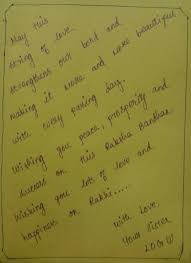 May this
string of love
strengthens our bond and
making it more and more beautiful
with every passing day.
Wishing you peace, prosperity and
success on this Raksha Bandhan
Wishing you lots of love and
happiness on Rakhi.....
with love,
Your Sister